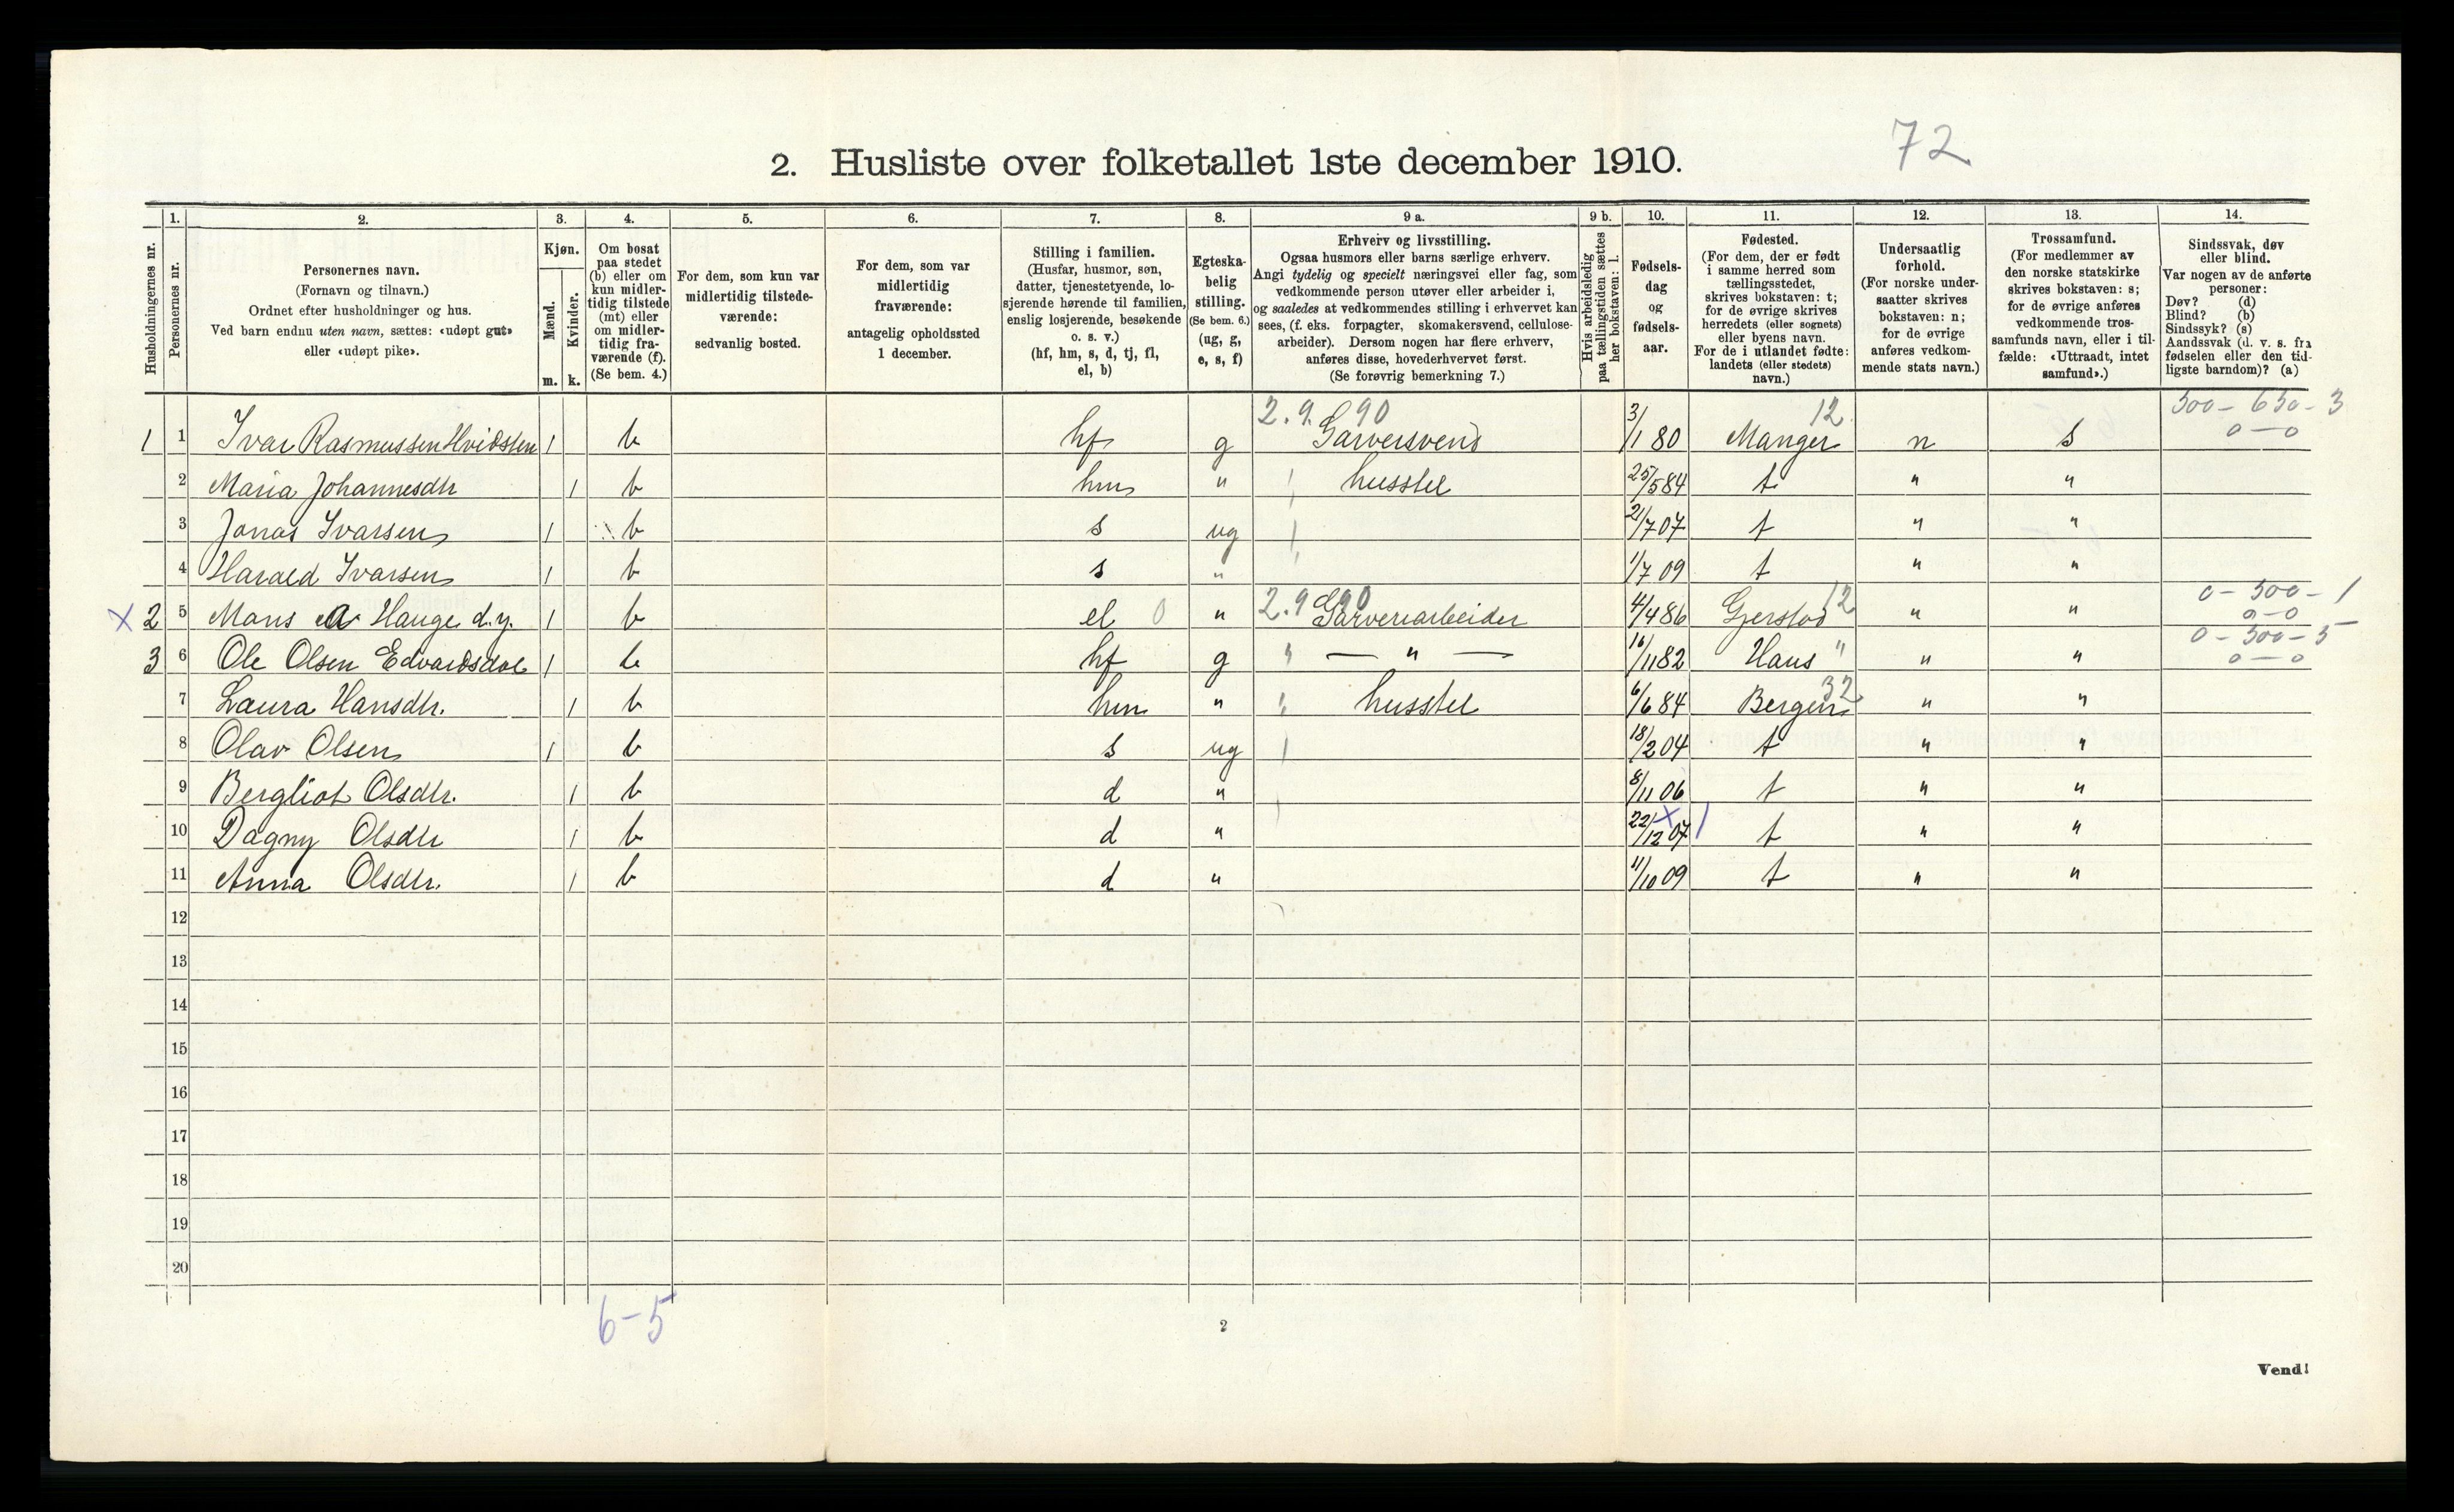 72
2. Husliste over folketallet 1ste december 1910.
Husholdningernes nr.
1. Personernes nr.
2. Personernes navn.
(Fornavn og tilnavn.)
Ordnet efter husholdninger og hus.
Ved barn endnu uten navn, sættes: «udøpt gut»
eller «udøpt pike».
3. Kjøn.
Mænd. m.
Kvinder. k.
4. Om bosat
paa stedet
(b) eller om
kun midler-
tidig tilstede
(mt) eller
om midler-
tidig fra-
værende (f).
(Se bem. 4.)
5. For dem, som kun var
midlertidig tilstede-
værende:
sedvanlig bosted.
6. For dem, som var
midlertidig
fraværende:
antagelig opholdssted
1 december.
7. Stilling i familien.
(Husfar, husmor, søn,
datter, tjenestetyende, lo-
sjerende hørende til familien,
enslig losjerende, besøkende
o. s. v.)
(hf, hm, s, d, tj, fl,
el, b)
8. Egteska-
belig
stilling.
(Se bem. 6.)
(ug, g,
e, s, f)
9 a. Erhverv og livsstilling.
Ogsaa husmors eller barns særlige erhverv.
Angi tydelig og specielt næringsvei eller fag, som
vedkommende person utøver eller arbeider i,
og saaledes at vedkommendes stilling i erhvervet kan
sees, (f. eks. forpagter, skomakersvend, cellulose-
arbeider). Dersom nogen har flere erhverv,
anføres disse, hovederhvervet først.
(Se forøvrig bemerkning 7.)
9 b. Hvis arbeidsledig
paa tællingstiden sættes
her bokstaven: l.
10. Fødsels-
dag
og
fødsels-
aar.
11. Fødested.
(For dem, der er født
i samme herred som
tællingsstedet,
skrives bokstaven: t;
for de øvrige skrives
herredets (eller sognets)
eller byens navn.
For de i utlandet fødte:
landets (eller stedets)
navn.)
12. Undersaatlig
forhold.
(For norske under-
saatter skrives
bokstaven: n;
for de øvrige
anføres vedkom-
mende stats navn.)
13. Trossamfund.
(For medlemmer av
den norske statskirke
skrives bokstaven: s;
for de øvrige anføres
vedkommende tros-
samfunds navn, eller i til-
fælde: «Uttraadt, intet
samfund».)
14. Sindssvak, døv
eller blind.
Var nogen av de anførte
personer:
Døv? (d)
Blind? (b)
Sindssyk? (s)
Aandssvak (d. v. s. fra
fødselen eller den tid-
ligste barndom)? (a)
2.9.90 12 500 - 650 - 3
1 1 Ivar Rasmussen Hvidsten 1 b hf g Garversvend 3/1 80 Manger n s 0-0
2 Maria Johannesdtr 1 b hm " husstel 25/5 84 t " "
3 Jonas Ivarsen 1 b s ug 2/7 07 t " "
4 Harald Ivarsen 1 b s " 1/7 09 t " "
2.9.90 12 0 - 500 - 1
X 2 5 Mons A Hauge d.y. 1 b el 0 " Garveriarbeider 4/4 86 Gjerstad " " 0-0
0 - 300 - 5
3 6 Ole Olsen Edvardsdal 1 b hf g — " — 16/11 82 Haus " " " 0-0
7 Laura Hansdtr. 1 b hm " husstel 6/6 84 Bergen 32 " "
8 Olav Olsen 1 b s ug 18/2 04 t " "
9 Bergliot Olsdtr. 1 b d " 8/11 06 t " "
10 Dagny Olsdtr 1 b d " 22/12 07 X 1 t " "
11 Anna Olsdtr. 1 b d " 11/10 09 t " "
12
13
14
15
16
17
18
19
20
6-5
2
Vend!